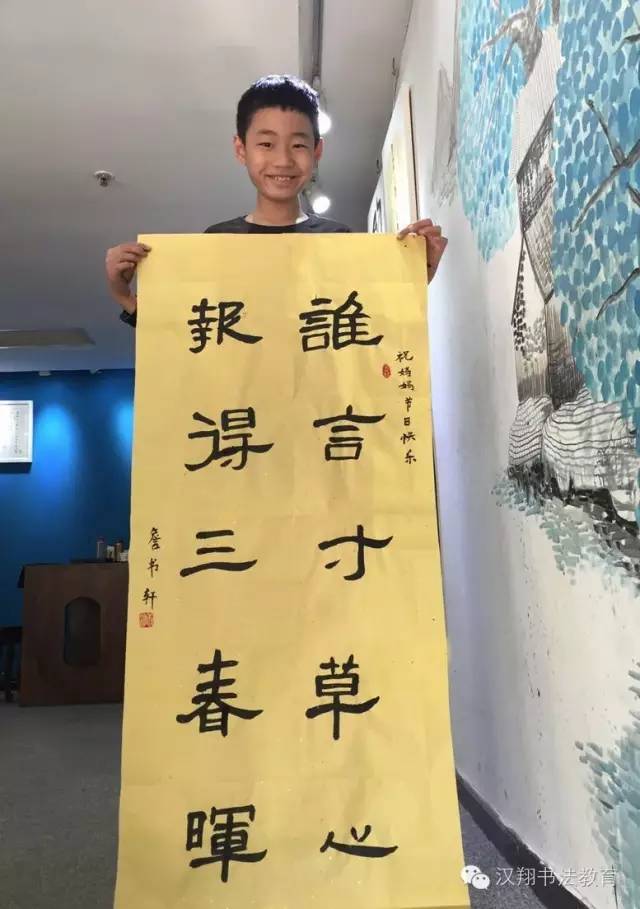 祝妈妈节日快乐
誰言寸草心
報得三春暉
詹书轩
汉翔书法教育